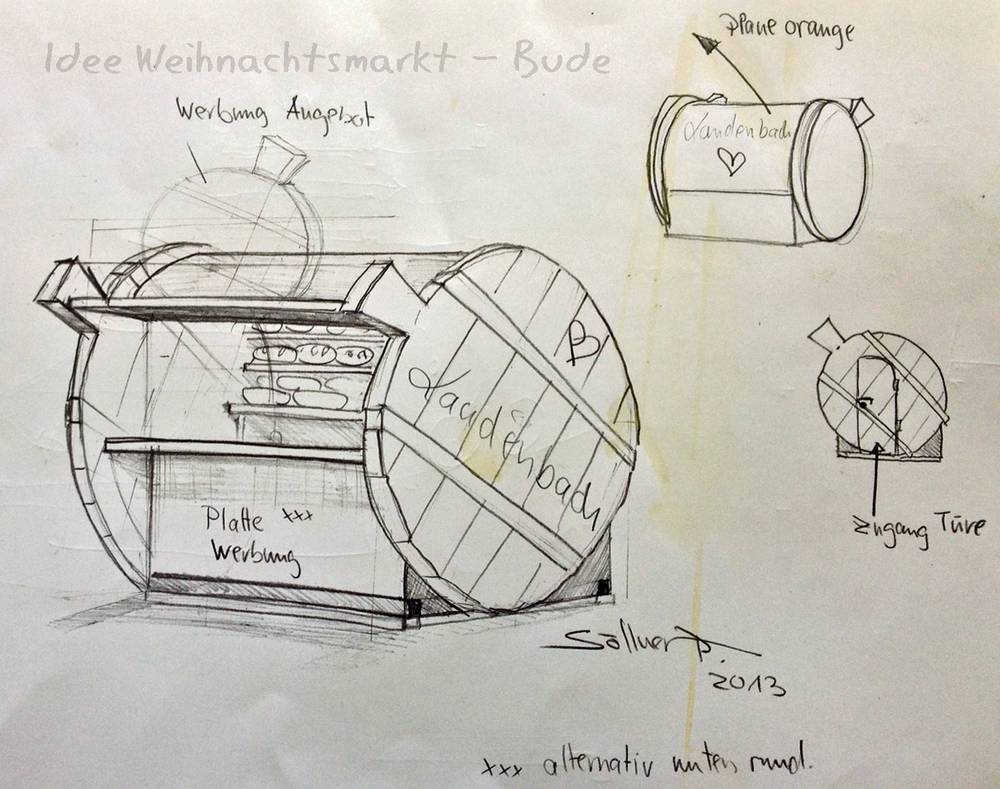 Idee Weihnachtsmarkt – Bude
Plane orange
Werbung Angebot
Laudenbach
Laudenbach
Platte xxx
Werbung
Zugang Türe
Söllner P.
2013
xxx alternativ unten rund.